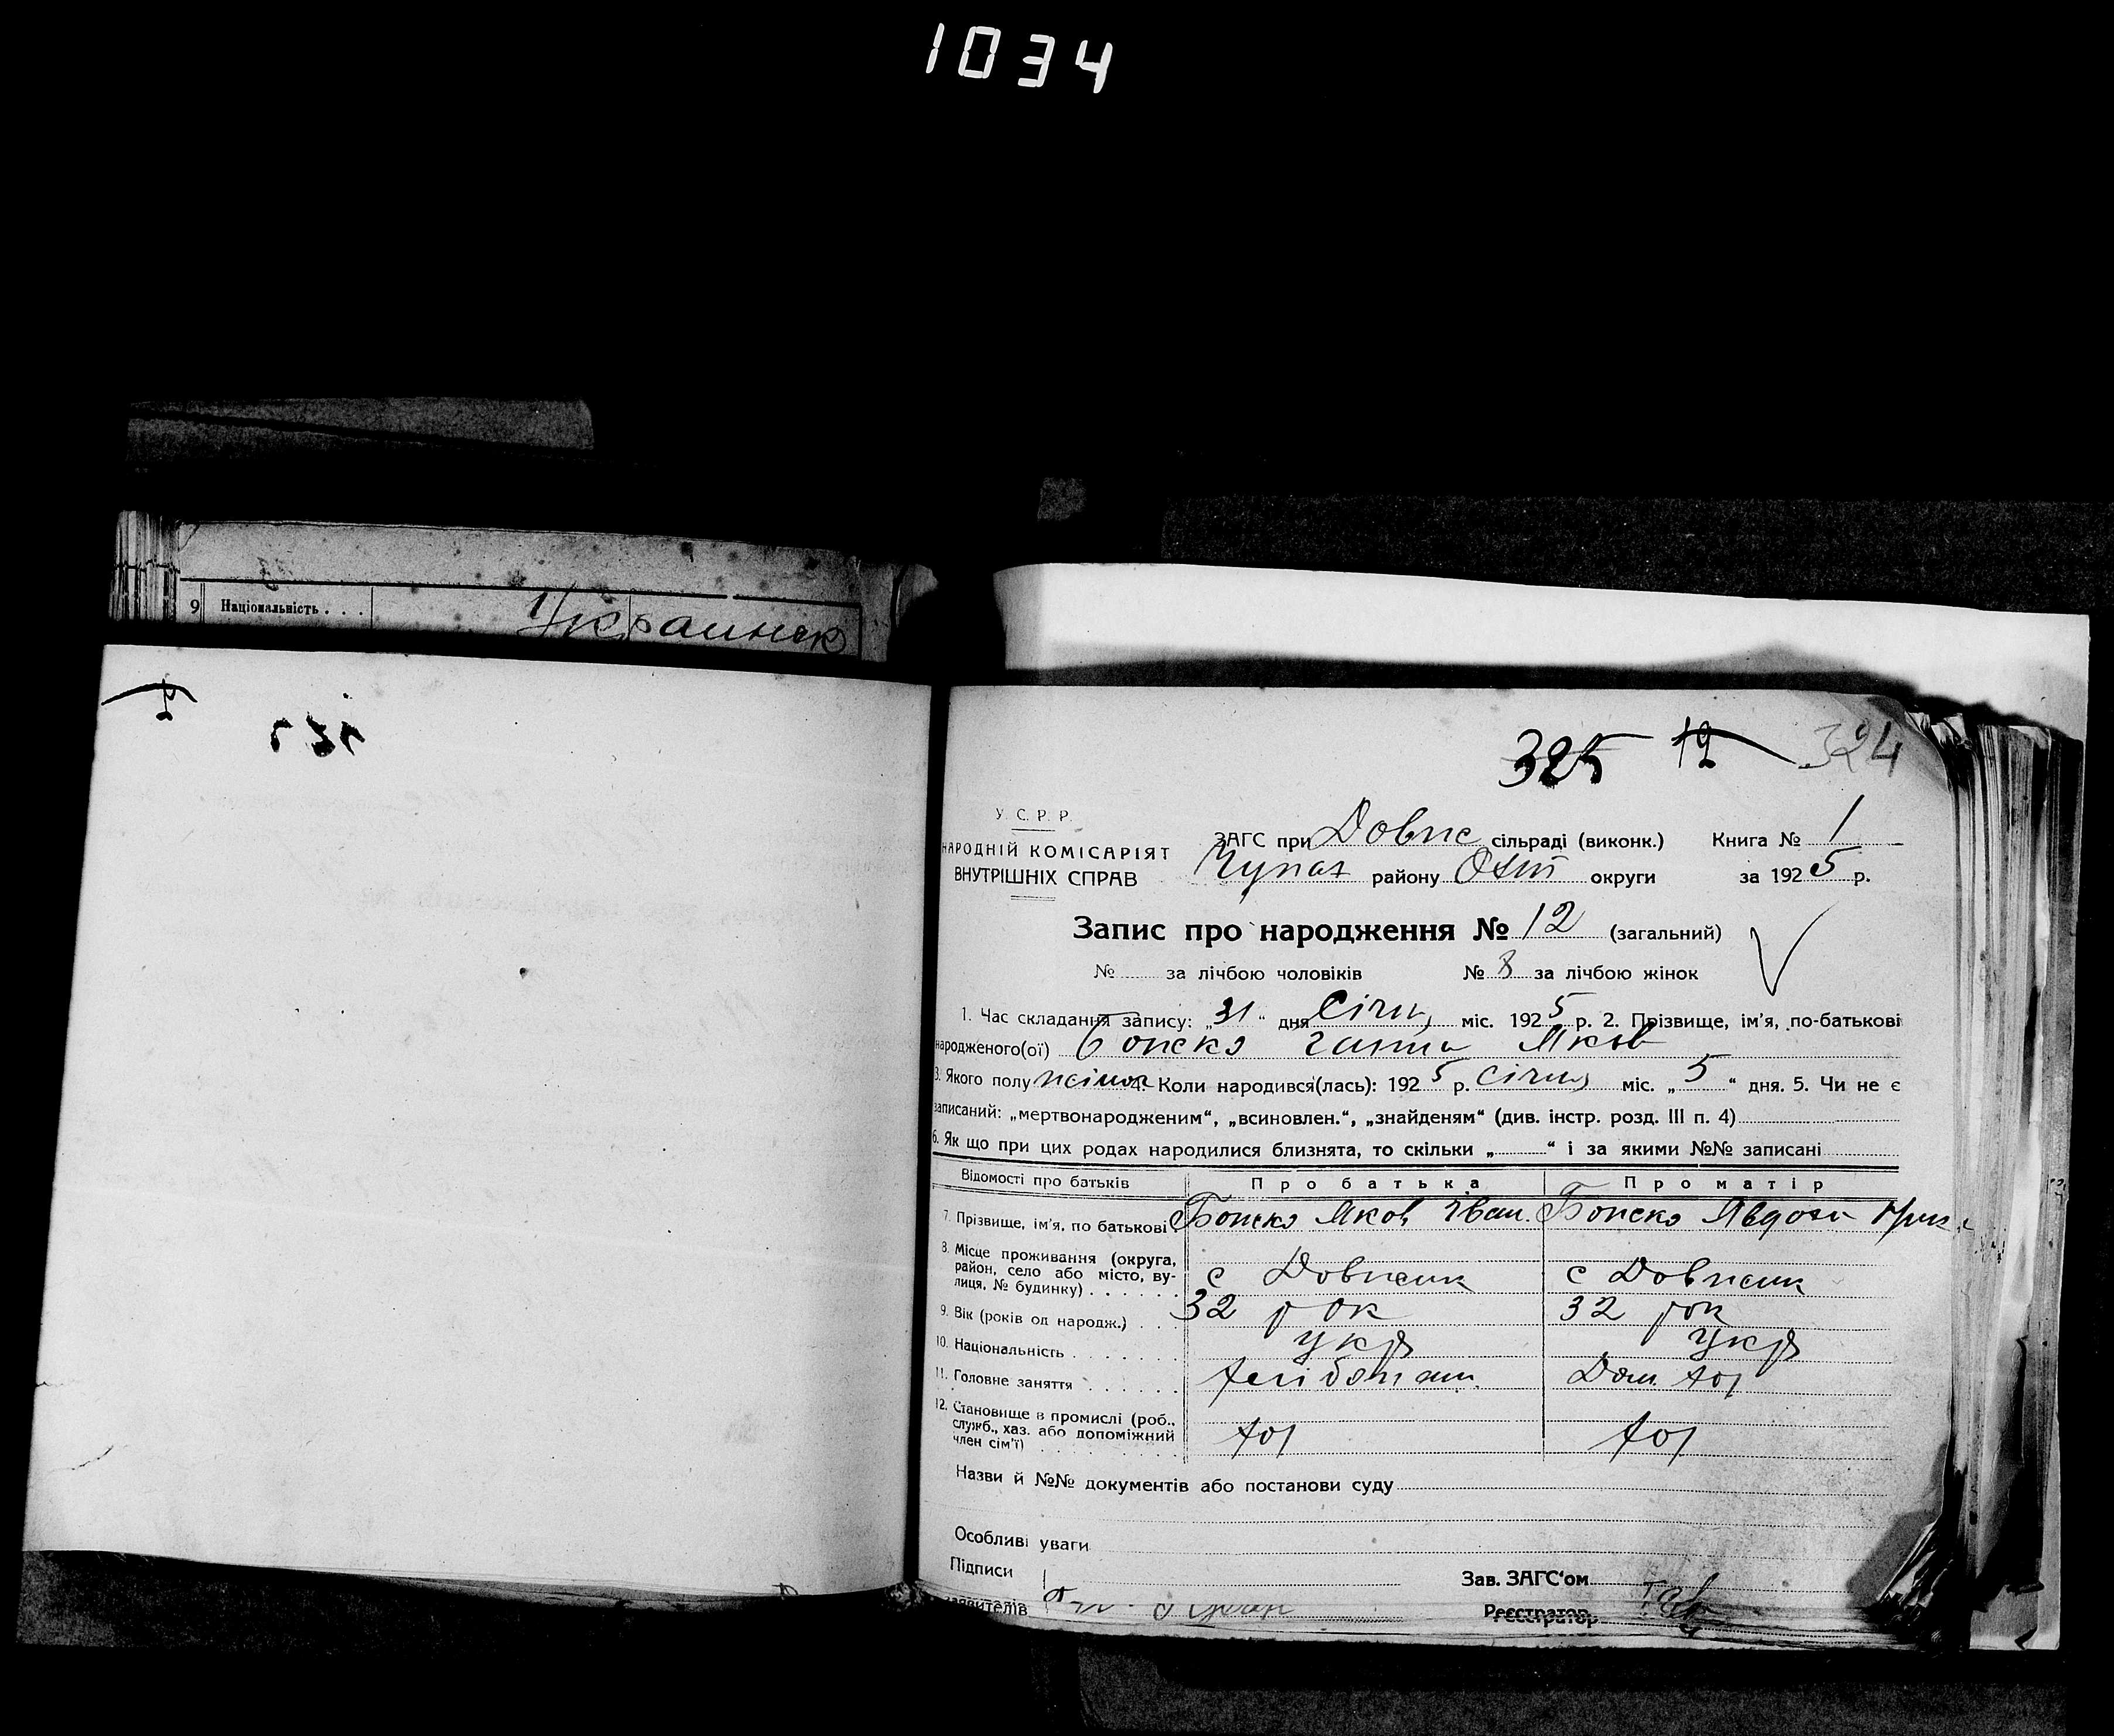 1034
9 Національність . . .
Украинск
325 12 324
У. С. Р. Р.
НАРОДНІЙ КОМІСАРІЯТ
ВНУТРІШНІХ СПРАВ
ЗАГС при Довпс сільраді (виконк.) Книга № 1
Чупах району Охт округи за 1925 р.
Запис про народження № 12 (загальний)
№ за лічбою чоловіків № 8 за лічбою жінок
1. Час складання запису: „31“ дня Січня міс. 1925 р. 2. Прізвище, ім'я, по-батькові
народженого(ої) Яков
3. Якого полу жіноч 4. Коли народився(лась): 1925 р. Січня міс. „5“ дня. 5. Чи не є
записаний: „мертвонародженим“, „всиновлен.“, „знайденям“ (див. інстр. розд. III п. 4)
6. Як що при цих родах народилися близнята, то скільки „ “ і за якими №№ записані
Відомості про батьків Про батька Про матір
7. Прізвище, ім'я, по батькові Яков Іван. Явдоха
8. Місце проживання (округа,
район, село або місто, ву-
лиця, № будинку) . . . . . . с Довпсик с Довпсик
9. Вік (років од народж.) . . . 32 рок 32 рок
10. Національність . . . . . . . укр укр
11. Головне заняття . . . . . . Дом. хоз
12. Становище в промислі (роб.,
служб., хаз. або допоміжний
член сім'ї) . . . . . . . . . хоз хоз
Назви й №№ документів або постанови суду
Особливі уваги
Підписи Зав. ЗАГС'ом
заявителів Реєстратор